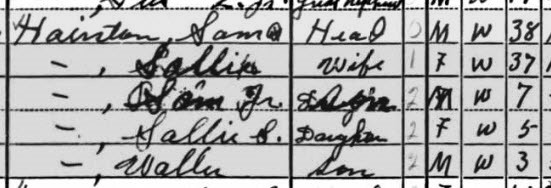 Hairston, Sam Head 0 M W 38
— , Sallie Wife 1 F W 37
— , Sam Jr. 2 M W 7
— , Sallie S. Daughter 2 F W 5
— , Son 2 M W 3